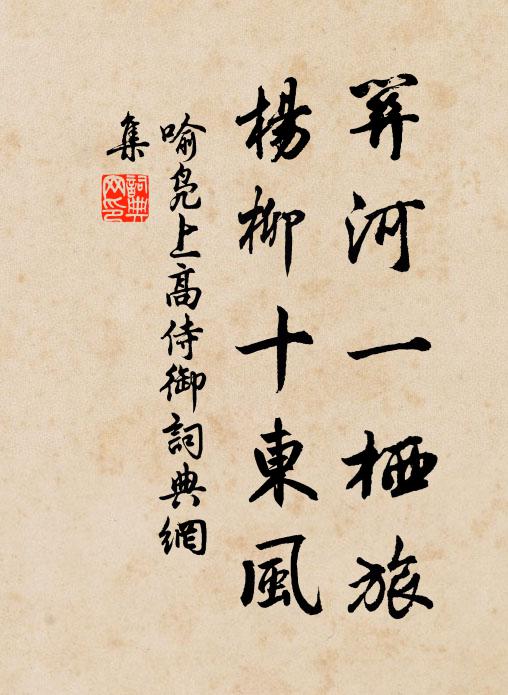 關河一栖旅
楊柳十東風
喻凫上高侍御詞典網
集
詞典
网印